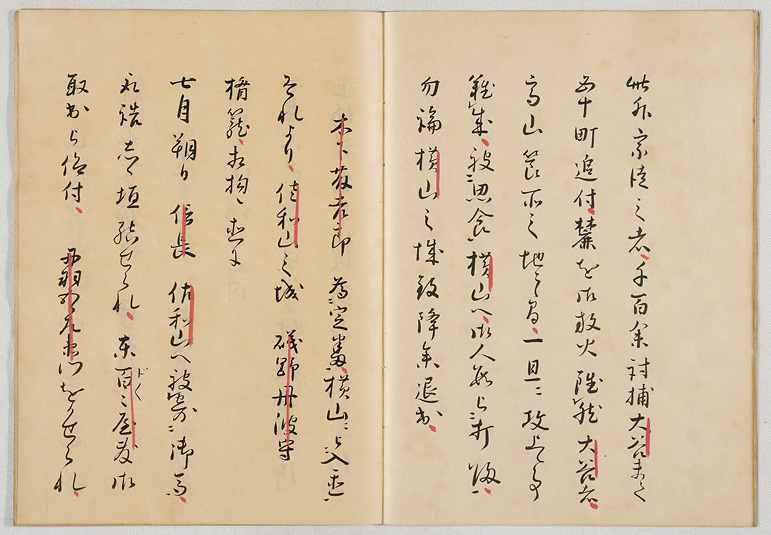 此外宗徒之者千百余討捕大谷まて
五十町追付麓を御放火雖然大谷者
高山節所之地之間一旦ニ攻上事
難成被思食横山へ御人数
勿論横山之城致降参退出
木下藤吉郎為定番横山ニ被入置
それより佐和山之城磯野丹波守
楯籠相拘直に
七月朔日信長佐和山へ被寄御馬
取詰しゝ垣結せられ東百々屋敷御
取出被仰付丹羽五郎左衛門をかせられ